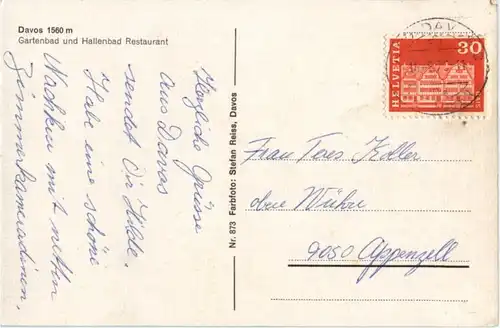 Davos 1560 m
Gartenbad und Hallenbad Restaurant
Herzliche Grüsse
aus Davos
sendet Dir Hilde.
Habe eine schöne
Wochen mit netten
Zimmerkameradinnen.
Nr. 873 Farbfoto: Stefan Reiss, Davos
HELVETIA
30
DAV
Frau
Koller
obere Wühre
9050 Appenzell